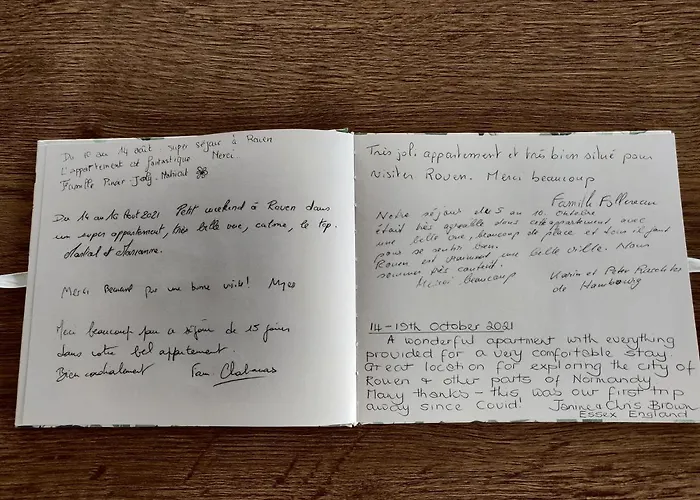 Du 10 au 14 août : super séjour à Rouen
L'appartement est fantastique Merci
Famille
Du 14 au 16 Aout 2021 Petit weekend à Rouen dans
un super appartement, très belle vue, calme, le top.
Martial et Marianne.
Merci Bernard pour une bonne visite!
Merci beaucoup pour ce séjour de 15 jours
dans votre bel appartement.
Bien cordialement Fam.
Très joli appartement et très bien situé pour
visiter Rouen. Merci beaucoup
Famille Follereau
Notre séjour du 5 au 10 Octobre
était très agréable dans cet appartement avec
une belle vue, beaucoup de place et tous il faut
pour se sentir bien.
Rouen est vraiment une belle ville. Nous
sommes très content.
Merci beaucoup Karin et Peter
de Hambourg
14-19th October 2021
A wonderful apartment with everything
provided for a very comfortable stay.
Great location for exploring the city of
Rouen & other parts of Normandy.
Many thanks - this was our first trip
away since Covid! Janine & Chris Brown
Essex England